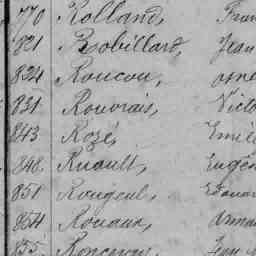 770 Rolland,
821 Robillard, Jean
824 Roucou,
831 Rouvrais, Victo
843 Rozé, Emile
848 Ruault, Eugèn
851 Rougeul, Edouar
854 Rouaux, Arman
855